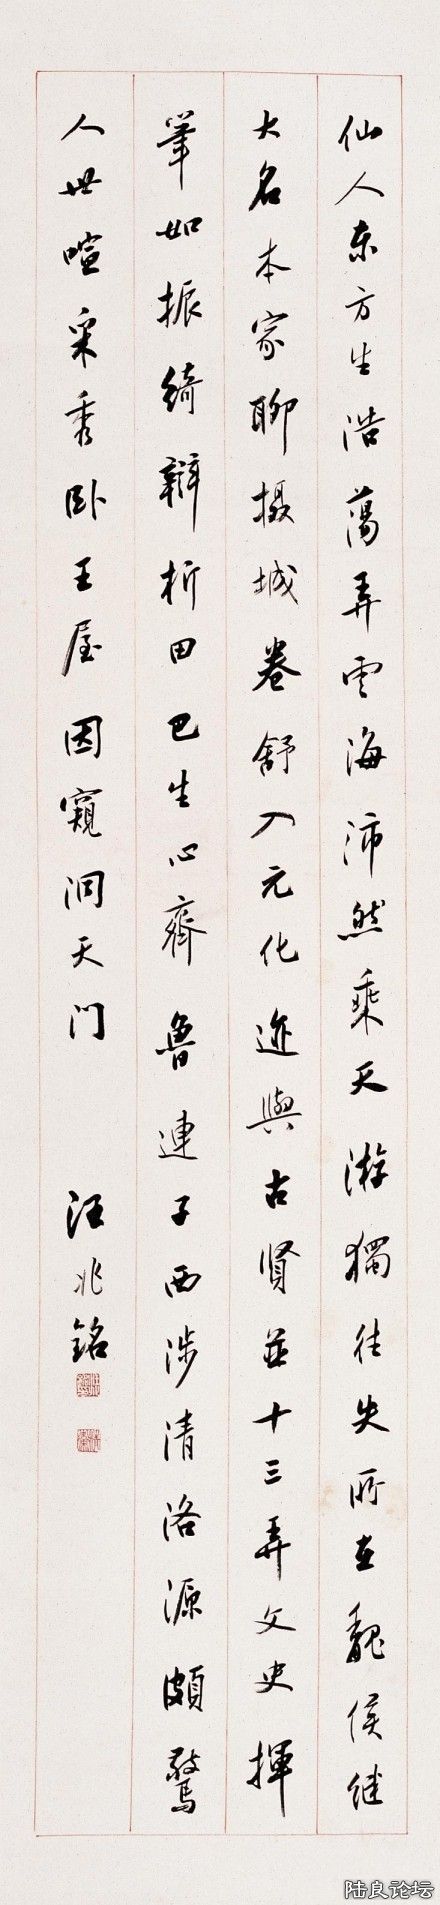 仙人東方生浩蕩弄雲海沛然乘天游獨往失所在魏侯继
大名本家聊摄城卷舒入元化迹與古賢並十三弄文史揮
筆如振绮辯析田巴生心齊魯連子西涉清洛源頗驚
人世喧采秀卧王屋因窺洞天门
汪兆銘
陆良论坛